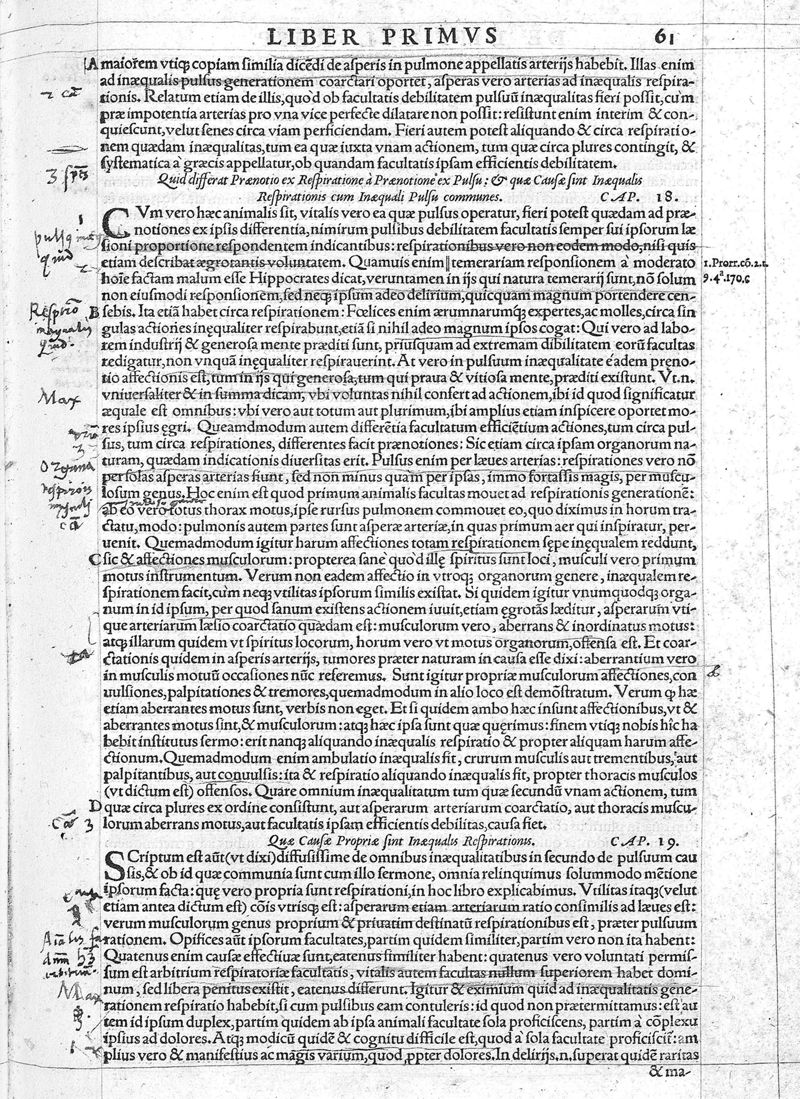 LIBER PRIMVS 61
A maiorem vtiq; copiam similia dicēdi de asperis in pulmone appellatis arterijs habebit. Illas enim
ad inæqualis pulsus generationem coarctari oportet, asperas vero arterias ad inæqualis respira-
tionis. Relatum etiam de illis, quòd ob facultatis debilitatem pulsuū inæqualitas fieri possit, cu'm
præ impotentia arterias pro vna vice perfecte dilatare non possit: resistunt enim interim & con-
quiescunt, velut senes circa viam perficiendam. Fieri autem potest aliquando & circa respiratio-
nem quædam inæqualitas, tum ea quæ iuxta vnam actionem, tum quæ circa plures contingit, &
systematica à græcis appellatur, ob quandam facultatis ipsam efficientis debilitatem.
Quid differat Prænotio ex Respiratione à Prænotione ex Pulsu: & quæ Causæ sint Inæqualis
Respirationis cum Inæquali Pulsu communes. CAP. 18.
CVm vero hæc animalis sit, vitalis vero ea quæ pulsus operatur, fieri potest quædam ad præ-
notiones ex ipsis differentia, nimirum pulsibus debilitatem facultatis semper sui ipsorum læ
sioni proportione respondentem indicantibus: respirationibus vero non eodem modo, nisi quis
etiam describat ægrotantis voluntatem. Quamuis enim temerariam responsionem à moderato
hoīe factam malum esse Hippocrates dicat, veruntamen in ijs qui natura temerarij sunt, nō solum
1.Prorr.cō.2.t.
9. 4ª.170.c
non eiusmodi responsionem, sed neq; ipsum adeo delirium, quicquam magnum portendere cen-
B sebis. Ita etiā habet circa respirationem: Fœlices enim ærumnarumq; expertes, ac molles, circa sin
gulas actiones inęqualiter respirabunt, etiā si nihil adeo magnum ipsos cogat: Qui vero ad labo-
rem industrij & generosa mente præditi sunt, priusquam ad extremam dibilitatem eorū facultas
redigatur, non vnquā inęqualiter respirauerint. At vero in pulsuum inæqualitate éadem pręno-
tio affectionis est, tum in ijs qui generosa, tum qui praua & vitiosa mente, præditi existunt. Vt.n.
vniuersaliter & in summa dicam, vbi voluntas nihil confert ad actionem, ibi id quod significatur
æquale est omnibus: vbi vero aut totum aut plurimum, ibi amplius etiam inspicere oportet mo-
res ipsius ęgri. Queamdmodum autem differētia facultatum efficiētium actiones, tum circa pul-
sus, tum circa respirationes, differentes facit prænotiones: Sic etiam circa ipsam organorum na-
turam, quædam indicationis diuersitas erit. Pulsus enim per læues arterias: respirationes vero nō
per solas asperas arterias fiunt, sed non minus quàm per ipsas, immo fortassis magis, per muscu-
losum genus. Hoc enim est quod primum animalis facultas mouet ad respirationis generationē:
ab eo vero totus thorax motus, ipse rursus pulmonem commouet eo, quo diximus in horum tra-
ctatu, modo: pulmonis autem partes sunt asperæ arteriæ, in quas primum aer qui inspiratur, per-
uenit. Quemadmodum igitur harum affectiones totam respirationem sępe inęqualem reddunt,
C sic & affectiones musculorum: propterea sanè quòd illę spiritus sunt loci, musculi vero primum
motus instrumentum. Verum non eadem affectio in vtroq; organorum genere, inæqualem re-
spirationem facit, cu'm neq; vtilitas ipsorum similis existat. Si quidem igitur vnumquodq; orga-
num in id ipsum, per quod sanum existens actionem iuuit, etiam egrotās læditur, asperarum vti-
que arteriarum læsio coarctatio quædam est: musculorum vero, aberrans & inordinatus motus:
atq; illarum quidem vt spiritus locorum, horum vero vt motus organorum, offensa est. Et coar-
ctationis quidem in asperis arterijs, tumores præter naturam in causa esse dixi: aberrantium vero
in musculis motuū occasiones nūc referemus. Sunt igitur propriæ musculorum affectiones, con
uulsiones, palpitationes & tremores, quemadmodum in alio loco est demōstratum. Verum ꝙ hæ
etiam aberrantes motus sunt, verbis non eget. Et si quidem ambo hæc insunt affectionibus, vt &
aberrantes motus sint, & musculorum: atq; hæc ipsa sunt quæ quęrimus: finem vtiq; nobis hîc ha
bebit institutus sermo: erit nanq; aliquando inæqualis respiratio & propter aliquam harum affe-
ctionum. Quemadmodum enim ambulatio inæqualis fit, crurum musculis aut trementibus, aut
palpitantibus, aut conuulsis: ita & respiratio aliquando inæqualis fit, propter thoracis musculos
(vt dictum est) offensos. Quare omnium inæqualitatum tum quæ secundū vnam actionem, tum
D quæ circa plures ex ordine consistunt, aut asperarum arteriarum coarctatio, aut thoracis muscu-
lorum aberrans motus, aut facultatis ipsam efficientis debilitas, causa fiet.
Quæ Causæ Propriæ sint Inæqualis Respirationis. CAP. 19.
SCriptum est aūt (vt dixi) diffusissime de omnibus inæqualitatibus in secundo de pulsuum cau
sis, & ob id quæ communia sunt cum illo sermone, omnia relinquimus solummodo mētione
ipsorum facta: quę vero propria sunt respirationi, in hoc libro explicabimus. Vtilitas itaq; (velut
etiam antea dictum est) cōis vtrisq; est: asperarum etiam arteriarum ratio consimilis ad læues est:
verum musculorum genus proprium & priuatim destinatū respirationibus est, præter pulsuum
rationem. Opifices aūt ipsorum facultates, partim quidem similiter, partim vero non ita habent:
Quatenus enim causæ effectiuæ sunt, eatenus similiter habent: quatenus vero voluntati permis-
sum est arbitrium respiratoriæ facultatis, vitalis autem facultas nullum superiorem habet domi-
num, sed libera penitus existit, eatenus differunt. Igitur & eximium quid ad inæqualitatis gene-
rationem respiratio habebit, si cum pulsibus eam contuleris: id quod non prætermittamus: est au
tem id ipsum duplex, partim quidem ab ipsa animali facultate sola proficiscens, partim à cōplexu
ipsius ad dolores. Atq; modicū quidē & cognitu difficile est, quod à sola facultate proficiscit: am
plius vero & manifestius ac magis varium, quod ꝓpter dolores. In delirijs.n. superat quidē raritas
& ma-